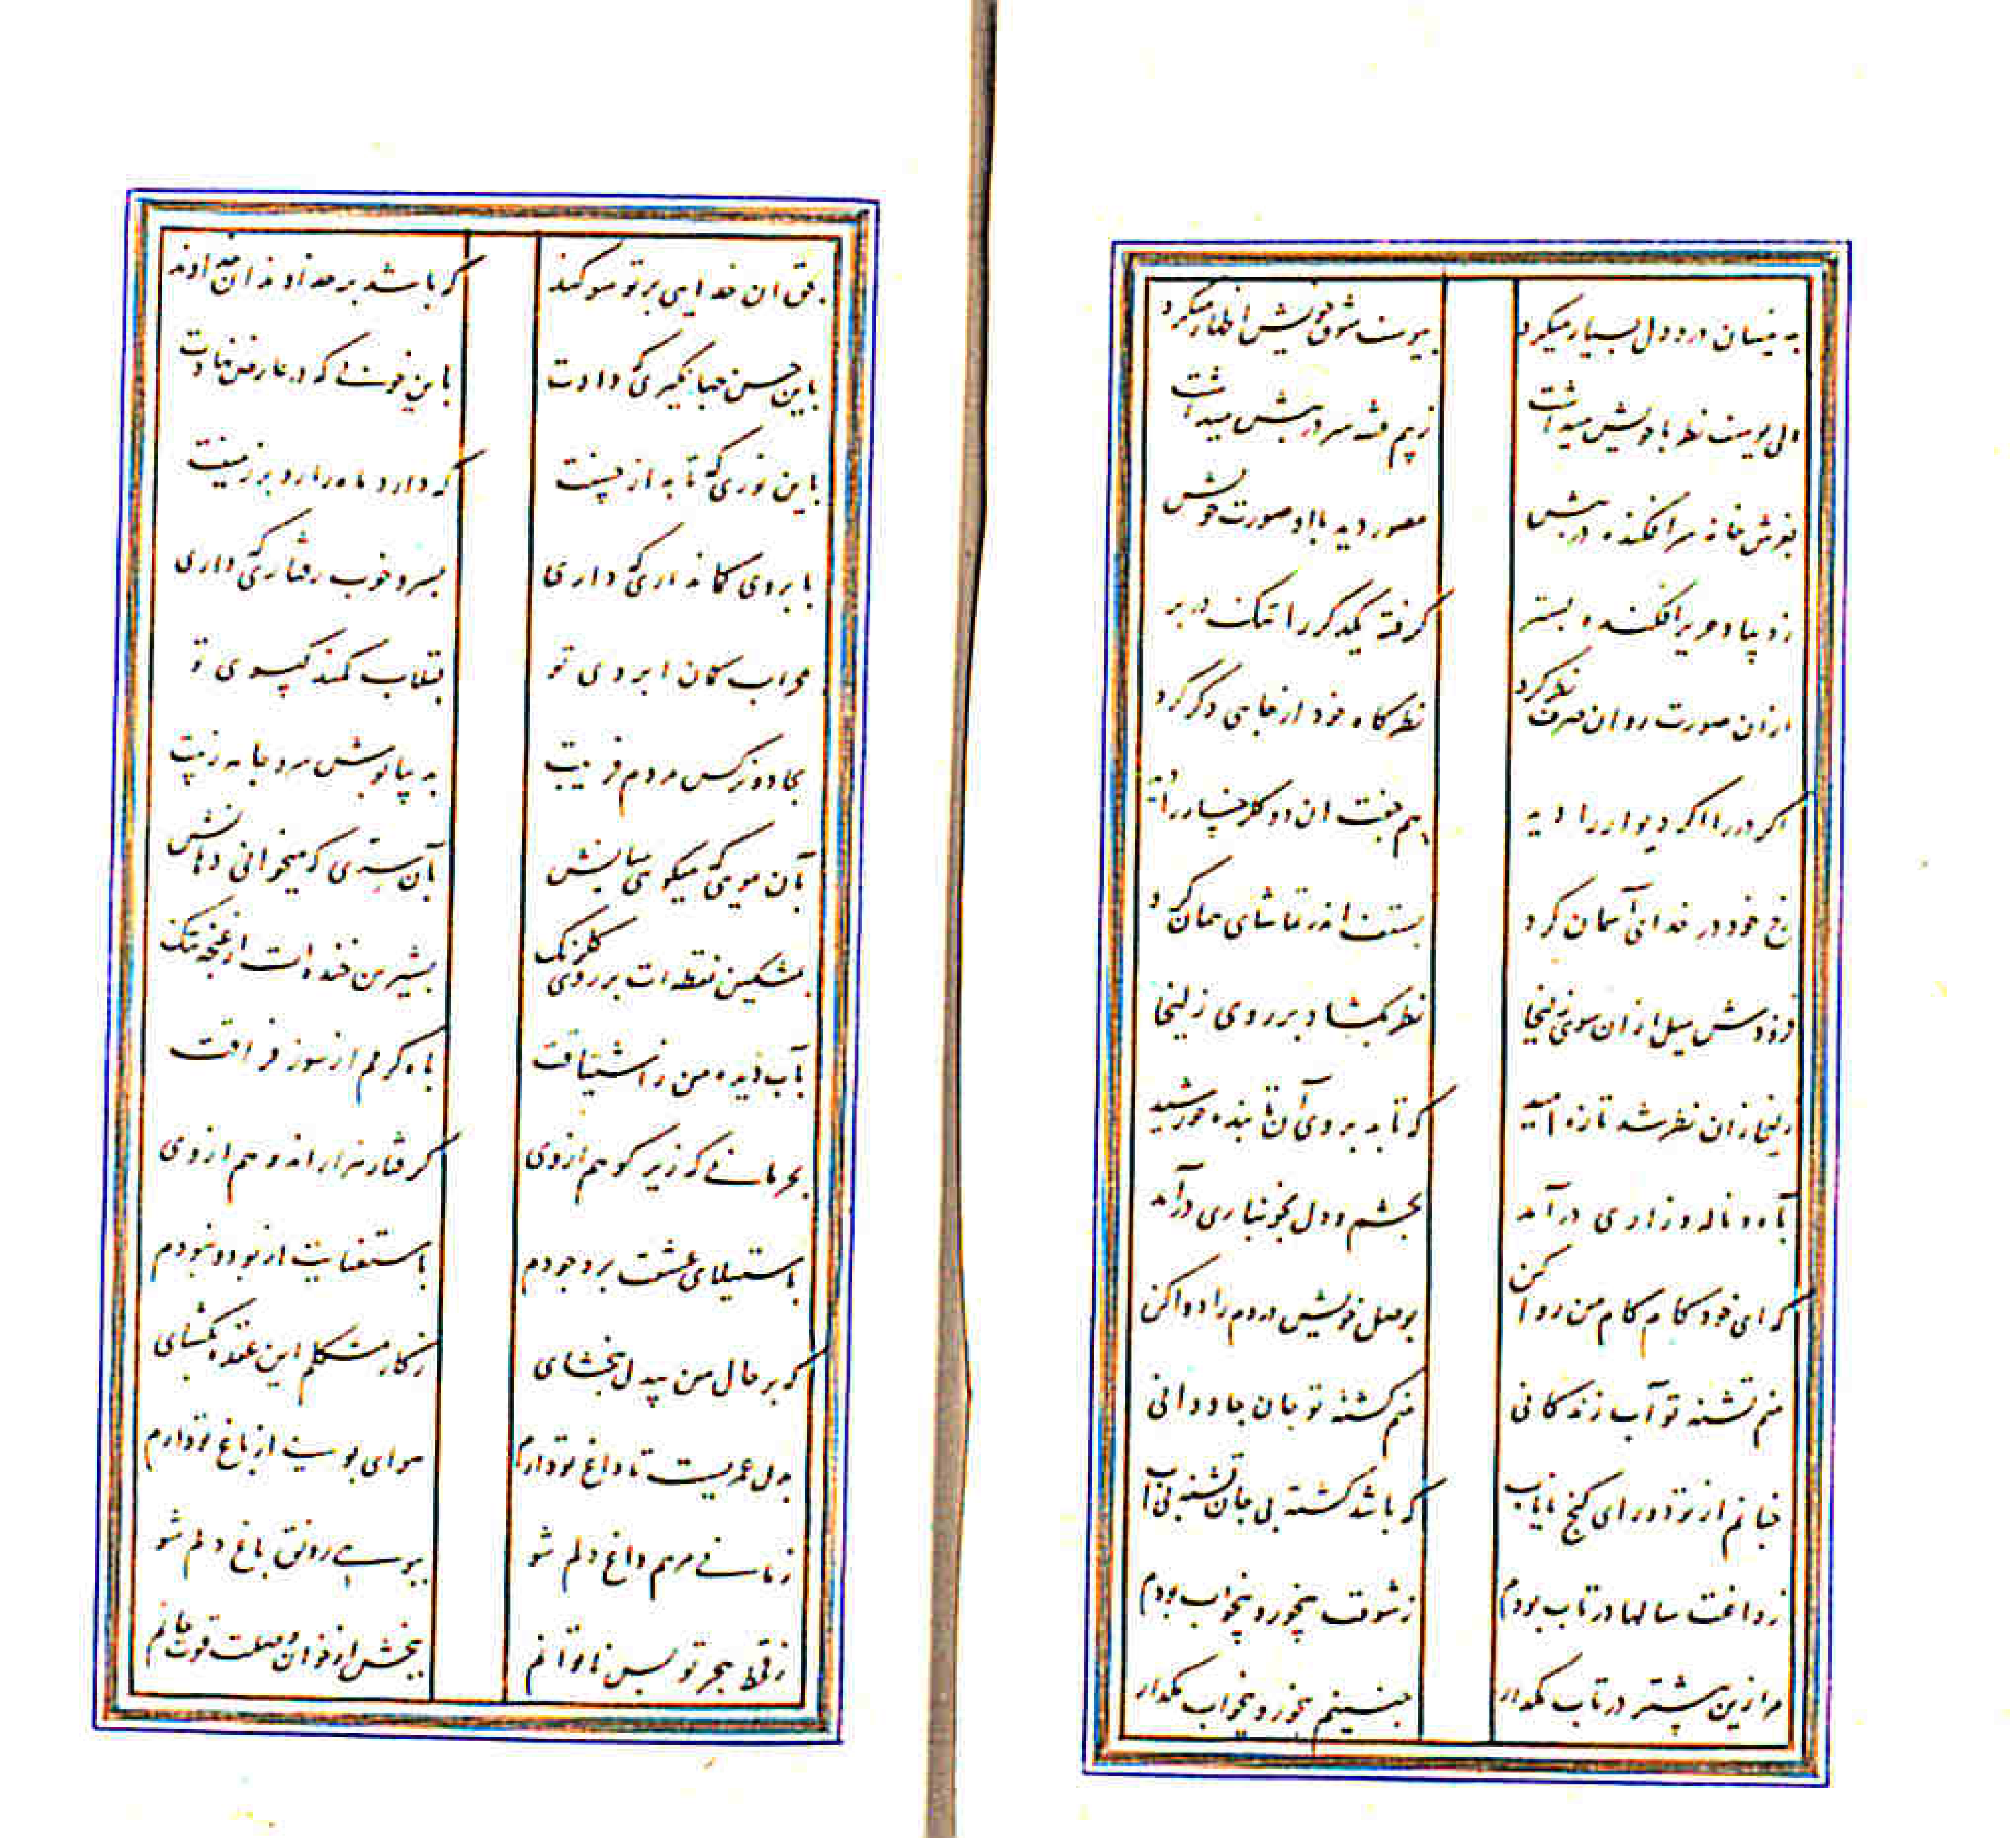 بدینسان درد دل بسیار میکرد بیوسف شوق خویش اظهار میکرد
ولی یوسف نظر با خویش میداشت ز بیم فتنه سر در پیش میداشت
بفرش خانه سر افکنده در پیش مصور دید با او صورت خویش
ز دیبا و حریر افکنده بستر گرفته یکدگر را تنک در بر
ازان صورت روان صرف نظر کرد نظرگاه خود از جایی دگر کرد
اگر در را اگر دیوار را دید بهم جفت ان دو گلرخسار را دید
رخ خود در خدای آسمان کرد بسقف اندر تماشای همان کرد
فزودش میل ازان سوی زلیخا نظر بگشاد بر روی زلیخا
زلیخا زان نظر شد تازه امید که تابد بروی آن تابنده خورشید
بآه و ناله و زاری درآمد بچشم و دل بخونباری درآمد
که ای خودکام کام من روا کن بوصل خویش دردم را دوا کن
منم تشنه تو آب زندگانی منم کشته تو جان جاودانی
چنانم از تو دور ای گنج نایاب که باشد کشته بی جان تشنه بی آب
ز داغت سالها در تاب بودم ز شوقت بیخور و بیخواب بودم
مرا زین بیشتر در تاب مگذار چنینم بیخور و بیخواب مگذار
بحق ان خدایی بر تو سوگند که باشد بر خداوندان خداوند
باین حسن جهانگیری که دادت باین خوبی که در عارض نهادت
باین نوری که تابد از جبینت که دارد ماه را رو بر زمینت
بابروی کمانداری که داری بسرو خوب رفتاری که داری
بمحراب کمان ابروی تو بقلاب کمند گیسوی تو
بجادو نرگس مردم فریبت به پابوس سرو جامه زیبت
بآن مویی که میگویی میانش بآن سری که میخوانی دهانش
بمشکین نقطه ات بر روی گلرنگ بشیرین خنده ات از غنچه تنگ
بآب دیده من ز اشتیاقت بآه گرمم از سوز فراقت
بحرمانی که زیر کوهم از وی گرفتار هزار اندوهم از وی
باستیلای عشقت بر وجودم باستغنایت از بود و نبودم
که بر حال من بیدل ببخشای ز کار مشکلم این عقده بگشای
بدل عمریست تا داغ تو دارم هوای بویی از باغ تو دارم
زمانی مرهم داغ دلم شو ببویی رونق باغ دلم شو
ز قحط هجر تو بس ناتوانم ببخش از خوان وصلت قوت جانم